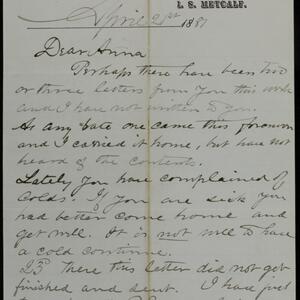 L. S. METCALF.
April 21st 1881
Dear Anna
Perhaps there have been two
or three letters from you this week
and I have not written to you.
At any rate one came this forenoon
and I carried it home, but have not
heard of the contents.
Lately you have complained of
Colds. If you are sick you
had better come home and
get well. It is not well to have
a cold continue.
23d There this letter did not get
finished and sent. I have just